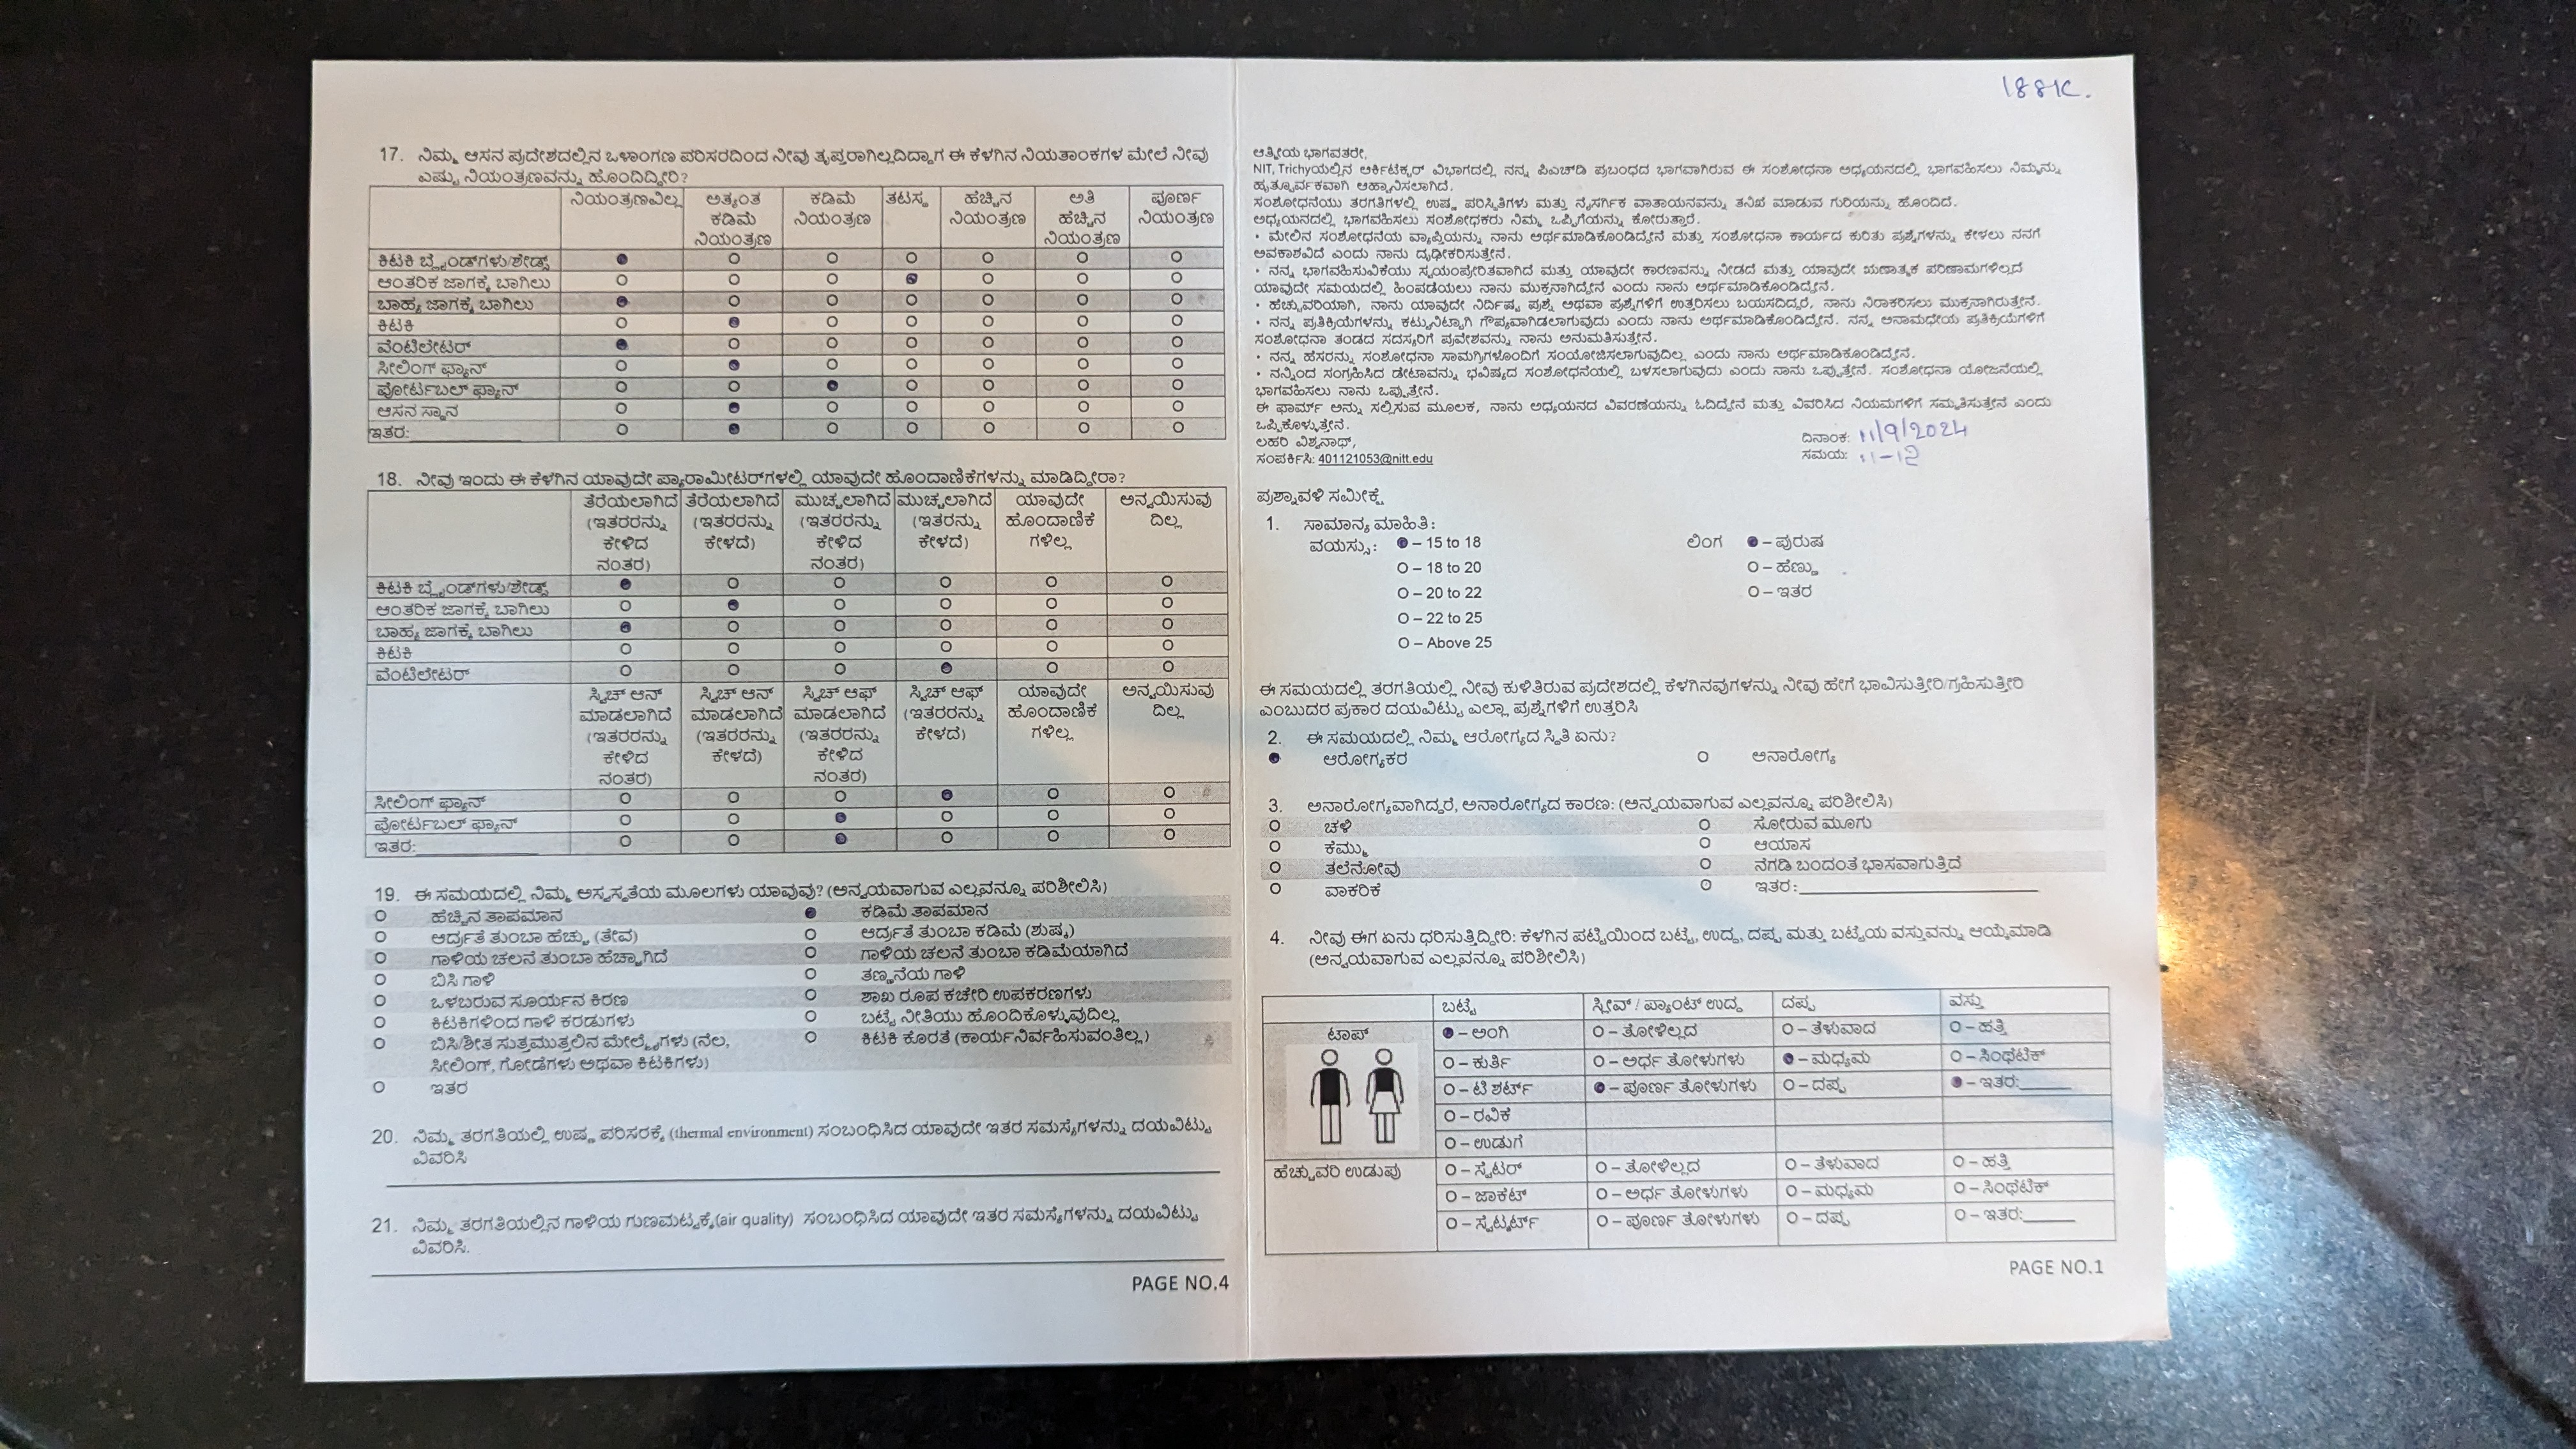 17. ನಿಮ್ಮ ಆಸನ ಪ್ರದೇಶದಲ್ಲಿನ ಒಳಾಂಗಣ ಪರಿಸರದಿಂದ ನೀವು ತೃಪ್ತರಾಗಿಲ್ಲದಿದ್ದಾಗ ಈ ಕೆಳಗಿನ ನಿಯತಾಂಕಗಳ ಮೇಲೆ ನೀವು
ಎಷ್ಟು ನಿಯಂತ್ರಣವನ್ನು ಹೊಂದಿದ್ದೀರಿ?
ನಿಯಂತ್ರಣವಿಲ್ಲ ಅತ್ಯಂತ ಕಡಿಮೆ ತಟಸ್ಥ ಹೆಚ್ಚಿನ ಅತಿ ಪೂರ್ಣ
ಕಡಿಮೆ ನಿಯಂತ್ರಣ ನಿಯಂತ್ರಣ ಹೆಚ್ಚಿನ ನಿಯಂತ್ರಣ
ನಿಯಂತ್ರಣ ನಿಯಂತ್ರಣ
ಕಿಟಕಿ ಬ್ಲೈಂಡ್‌ಗಳು/ಶೇಡ್ಸ್
ಆಂತರಿಕ ಜಾಗಕ್ಕೆ ಬಾಗಿಲು
ಬಾಹ್ಯ ಜಾಗಕ್ಕೆ ಬಾಗಿಲು
ಕಿಟಕಿ
ವೆಂಟಿಲೇಟರ್
ಸೀಲಿಂಗ್ ಫ್ಯಾನ್
ಪೋರ್ಟಬಲ್ ಫ್ಯಾನ್
ಆಸನ ಸ್ಥಾನ
ಇತರ:
18. ನೀವು ಇಂದು ಈ ಕೆಳಗಿನ ಯಾವುದೇ ಪ್ಯಾರಾಮೀಟರ್‌ಗಳಲ್ಲಿ ಯಾವುದೇ ಹೊಂದಾಣಿಕೆಗಳನ್ನು ಮಾಡಿದ್ದೀರಾ?
ತೆರೆಯಲಾಗಿದೆ ತೆರೆಯಲಾಗಿದೆ ಮುಚ್ಚಲಾಗಿದೆ ಮುಚ್ಚಲಾಗಿದೆ ಯಾವುದೇ ಅನ್ವಯಿಸುವು
(ಇತರರನ್ನು (ಇತರರನ್ನು (ಇತರರನ್ನು (ಇತರನ್ನು ಹೊಂದಾಣಿಕೆ ದಿಲ್ಲ
ಕೇಳಿದ ಕೇಳದೆ) ಕೇಳಿದ ಕೇಳದೆ) ಗಳಿಲ್ಲ
ನಂತರ) ನಂತರ)
ಕಿಟಕಿ ಬ್ಲೈಂಡ್‌ಗಳು/ಶೇಡ್ಸ್
ಆಂತರಿಕ ಜಾಗಕ್ಕೆ ಬಾಗಿಲು
ಬಾಹ್ಯ ಜಾಗಕ್ಕೆ ಬಾಗಿಲು
ಕಿಟಕಿ
ವೆಂಟಿಲೇಟರ್
ಸ್ವಿಚ್ ಆನ್ ಸ್ವಿಚ್ ಆನ್ ಸ್ವಿಚ್ ಆಫ್ ಸ್ವಿಚ್ ಆಫ್ ಯಾವುದೇ ಅನ್ವಯಿಸುವು
ಮಾಡಲಾಗಿದೆ ಮಾಡಲಾಗಿದೆ ಮಾಡಲಾಗಿದೆ (ಇತರರನ್ನು ಹೊಂದಾಣಿಕೆ ದಿಲ್ಲ
(ಇತರರನ್ನು (ಇತರರನ್ನು (ಇತರರನ್ನು ಕೇಳದೆ) ಗಳಿಲ್ಲ
ಕೇಳಿದ ಕೇಳದೆ) ಕೇಳಿದ
ನಂತರ) ನಂತರ)
ಸೀಲಿಂಗ್ ಫ್ಯಾನ್
ಪೋರ್ಟಬಲ್ ಫ್ಯಾನ್
ಇತರ:
19. ಈ ಸಮಯದಲ್ಲಿ ನಿಮ್ಮ ಅಸ್ವಸ್ಥತೆಯ ಮೂಲಗಳು ಯಾವುವು? (ಅನ್ವಯವಾಗುವ ಎಲ್ಲವನ್ನೂ ಪರಿಶೀಲಿಸಿ)
ಹೆಚ್ಚಿನ ತಾಪಮಾನ ಕಡಿಮೆ ತಾಪಮಾನ
ಆರ್ದ್ರತೆ ತುಂಬಾ ಹೆಚ್ಚು (ತೇವ) ಆರ್ದ್ರತೆ ತುಂಬಾ ಕಡಿಮೆ (ಶುಷ್ಕ)
ಗಾಳಿಯ ಚಲನೆ ತುಂಬಾ ಹೆಚ್ಚಾಗಿದೆ ಗಾಳಿಯ ಚಲನೆ ತುಂಬಾ ಕಡಿಮೆಯಾಗಿದೆ
ಬಿಸಿ ಗಾಳಿ ತಣ್ಣನೆಯ ಗಾಳಿ
ಒಳಬರುವ ಸೂರ್ಯನ ಕಿರಣ ಶಾಖ ರೂಪ ಕಚೇರಿ ಉಪಕರಣಗಳು
ಕಿಟಕಿಗಳಿಂದ ಗಾಳಿ ಕರಡುಗಳು ಬಟ್ಟೆ ನೀತಿಯು ಹೊಂದಿಕೊಳ್ಳುವುದಿಲ್ಲ
ಬಿಸಿ/ಶೀತ ಸುತ್ತಮುತ್ತಲಿನ ಮೇಲ್ಮೈಗಳು (ನೆಲ, ಕಿಟಕಿ ಕೊರತೆ (ಕಾರ್ಯನಿರ್ವಹಿಸುವಂತಿಲ್ಲ)
ಸೀಲಿಂಗ್, ಗೋಡೆಗಳು ಅಥವಾ ಕಿಟಕಿಗಳು)
ಇತರ
20. ನಿಮ್ಮ ತರಗತಿಯಲ್ಲಿ ಉಷ್ಣ ಪರಿಸರಕ್ಕೆ (thermal environment) ಸಂಬಂಧಿಸಿದ ಯಾವುದೇ ಇತರ ಸಮಸ್ಯೆಗಳನ್ನು ದಯವಿಟ್ಟು
ವಿವರಿಸಿ
21. ನಿಮ್ಮ ತರಗತಿಯಲ್ಲಿನ ಗಾಳಿಯ ಗುಣಮಟ್ಟಕ್ಕೆ(air quality) ಸಂಬಂಧಿಸಿದ ಯಾವುದೇ ಇತರ ಸಮಸ್ಯೆಗಳನ್ನು ದಯವಿಟ್ಟು
ವಿವರಿಸಿ.
PAGE NO.4
188K.
ಆತ್ಮೀಯ ಭಾಗವತರೇ,
NIT, Trichyಯಲ್ಲಿನ ಆರ್ಕಿಟೆಕ್ಚರ್ ವಿಭಾಗದಲ್ಲಿ ನನ್ನ ಪಿಎಚ್‌ಡಿ ಪ್ರಬಂಧದ ಭಾಗವಾಗಿರುವ ಈ ಸಂಶೋಧನಾ ಅಧ್ಯಯನದಲ್ಲಿ ಭಾಗವಹಿಸಲು ನಿಮ್ಮನ್ನು
ಹೃತ್ಪೂರ್ವಕವಾಗಿ ಆಹ್ವಾನಿಸಲಾಗಿದೆ.
ಸಂಶೋಧನೆಯು ತರಗತಿಗಳಲ್ಲಿ ಉಷ್ಣ ಪರಿಸ್ಥಿತಿಗಳು ಮತ್ತು ನೈಸರ್ಗಿಕ ವಾತಾಯನವನ್ನು ತನಿಖೆ ಮಾಡುವ ಗುರಿಯನ್ನು ಹೊಂದಿದೆ.
ಅಧ್ಯಯನದಲ್ಲಿ ಭಾಗವಹಿಸಲು ಸಂಶೋಧಕರು ನಿಮ್ಮ ಒಪ್ಪಿಗೆಯನ್ನು ಕೋರುತ್ತಾರೆ.
• ಮೇಲಿನ ಸಂಶೋಧನೆಯ ವ್ಯಾಪ್ತಿಯನ್ನು ನಾನು ಅರ್ಥಮಾಡಿಕೊಂಡಿದ್ದೇನೆ ಮತ್ತು ಸಂಶೋಧನಾ ಕಾರ್ಯದ ಕುರಿತು ಪ್ರಶ್ನೆಗಳನ್ನು ಕೇಳಲು ನನಗೆ
ಅವಕಾಶವಿದೆ ಎಂದು ನಾನು ದೃಢೀಕರಿಸುತ್ತೇನೆ.
• ನನ್ನ ಭಾಗವಹಿಸುವಿಕೆಯು ಸ್ವಯಂಪ್ರೇರಿತವಾಗಿದೆ ಮತ್ತು ಯಾವುದೇ ಕಾರಣವನ್ನು ನೀಡದೆ ಮತ್ತು ಯಾವುದೇ ಋಣಾತ್ಮಕ ಪರಿಣಾಮಗಳಿಲ್ಲದೆ
ಯಾವುದೇ ಸಮಯದಲ್ಲಿ ಹಿಂಪಡೆಯಲು ನಾನು ಮುಕ್ತನಾಗಿದ್ದೇನೆ ಎಂದು ನಾನು ಅರ್ಥಮಾಡಿಕೊಂಡಿದ್ದೇನೆ.
• ಹೆಚ್ಚುವರಿಯಾಗಿ, ನಾನು ಯಾವುದೇ ನಿರ್ದಿಷ್ಟ ಪ್ರಶ್ನೆ ಅಥವಾ ಪ್ರಶ್ನೆಗಳಿಗೆ ಉತ್ತರಿಸಲು ಬಯಸದಿದ್ದರೆ, ನಾನು ನಿರಾಕರಿಸಲು ಮುಕ್ತನಾಗಿರುತ್ತೇನೆ.
• ನನ್ನ ಪ್ರತಿಕ್ರಿಯೆಗಳನ್ನು ಕಟ್ಟುನಿಟ್ಟಾಗಿ ಗೌಪ್ಯವಾಗಿಡಲಾಗುವುದು ಎಂದು ನಾನು ಅರ್ಥಮಾಡಿಕೊಂಡಿದ್ದೇನೆ. ನನ್ನ ಅನಾಮಧೇಯ ಪ್ರತಿಕ್ರಿಯೆಗಳಿಗೆ
ಸಂಶೋಧನಾ ತಂಡದ ಸದಸ್ಯರಿಗೆ ಪ್ರವೇಶವನ್ನು ನಾನು ಅನುಮತಿಸುತ್ತೇನೆ.
• ನನ್ನ ಹೆಸರನ್ನು ಸಂಶೋಧನಾ ಸಾಮಗ್ರಿಗಳೊಂದಿಗೆ ಸಂಯೋಜಿಸಲಾಗುವುದಿಲ್ಲ ಎಂದು ನಾನು ಅರ್ಥಮಾಡಿಕೊಂಡಿದ್ದೇನೆ.
• ನನ್ನಿಂದ ಸಂಗ್ರಹಿಸಿದ ಡೇಟಾವನ್ನು ಭವಿಷ್ಯದ ಸಂಶೋಧನೆಯಲ್ಲಿ ಬಳಸಲಾಗುವುದು ಎಂದು ನಾನು ಒಪ್ಪುತ್ತೇನೆ. ಸಂಶೋಧನಾ ಯೋಜನೆಯಲ್ಲಿ
ಭಾಗವಹಿಸಲು ನಾನು ಒಪ್ಪುತ್ತೇನೆ.
ಈ ಫಾರ್ಮ್ ಅನ್ನು ಸಲ್ಲಿಸುವ ಮೂಲಕ, ನಾನು ಅಧ್ಯಯನದ ವಿವರಣೆಯನ್ನು ಓದಿದ್ದೇನೆ ಮತ್ತು ವಿವರಿಸಿದ ನಿಯಮಗಳಿಗೆ ಸಮ್ಮತಿಸುತ್ತೇನೆ ಎಂದು
ಒಪ್ಪಿಕೊಳ್ಳುತ್ತೇನೆ.
ಲಹರಿ ವಿಶ್ವನಾಥ್, ದಿನಾಂಕ: 11/9/2024
ಸಂಪರ್ಕಿಸಿ: 401121053@nitt.edu ಸಮಯ: 11-12
ಪ್ರಶ್ನಾವಳಿ ಸಮೀಕ್ಷೆ
1. ಸಾಮಾನ್ಯ ಮಾಹಿತಿ:
ವಯಸ್ಸು: – 15 to 18 ಲಿಂಗ – ಪುರುಷ
O – 18 to 20 O – ಹೆಣ್ಣು
O – 20 to 22 O – ಇತರ
O – 22 to 25
O – Above 25
ಈ ಸಮಯದಲ್ಲಿ ತರಗತಿಯಲ್ಲಿ ನೀವು ಕುಳಿತಿರುವ ಪ್ರದೇಶದಲ್ಲಿ ಕೆಳಗಿನವುಗಳನ್ನು ನೀವು ಹೇಗೆ ಭಾವಿಸುತ್ತೀರಿ/ಗ್ರಹಿಸುತ್ತೀರಿ
ಎಂಬುದರ ಪ್ರಕಾರ ದಯವಿಟ್ಟು ಎಲ್ಲಾ ಪ್ರಶ್ನೆಗಳಿಗೆ ಉತ್ತರಿಸಿ
2. ಈ ಸಮಯದಲ್ಲಿ ನಿಮ್ಮ ಆರೋಗ್ಯದ ಸ್ಥಿತಿ ಏನು?
ಆರೋಗ್ಯಕರ ಅನಾರೋಗ್ಯ
3. ಅನಾರೋಗ್ಯವಾಗಿದ್ದರೆ, ಅನಾರೋಗ್ಯದ ಕಾರಣ: (ಅನ್ವಯವಾಗುವ ಎಲ್ಲವನ್ನೂ ಪರಿಶೀಲಿಸಿ)
ಚಳಿ ಸೋರುವ ಮೂಗು
ಕೆಮ್ಮು ಆಯಾಸ
ತಲೆನೋವು ನೆಗಡಿ ಬಂದಂತೆ ಭಾಸವಾಗುತ್ತಿದೆ
ವಾಕರಿಕೆ ಇತರ:
4. ನೀವು ಈಗ ಏನು ಧರಿಸುತ್ತಿದ್ದೀರಿ: ಕೆಳಗಿನ ಪಟ್ಟಿಯಿಂದ ಬಟ್ಟೆ, ಉದ್ದ, ದಪ್ಪ ಮತ್ತು ಬಟ್ಟೆಯ ವಸ್ತುವನ್ನು ಆಯ್ಕೆಮಾಡಿ
(ಅನ್ವಯವಾಗುವ ಎಲ್ಲವನ್ನೂ ಪರಿಶೀಲಿಸಿ)
ಬಟ್ಟೆ ಸ್ಲೀವ್ / ಪ್ಯಾಂಟ್ ಉದ್ದ ದಪ್ಪ ವಸ್ತು
ಟಾಪ್ – ಅಂಗಿ O – ತೋಳಿಲ್ಲದ O – ತೆಳುವಾದ O – ಹತ್ತಿ
O – ಕುರ್ತಿ O – ಅರ್ಧ ತೋಳುಗಳು – ಮಧ್ಯಮ O – ಸಿಂಥೆಟಿಕ್
O – ಟಿ ಶರ್ಟ್ – ಪೂರ್ಣ ತೋಳುಗಳು O – ದಪ್ಪ – ಇತರ:
O – ರವಿಕೆ
O – ಉಡುಗೆ
ಹೆಚ್ಚುವರಿ ಉಡುಪು O – ಸ್ವೆಟರ್ O – ತೋಳಿಲ್ಲದ O – ತೆಳುವಾದ O – ಹತ್ತಿ
O – ಜಾಕೆಟ್ O – ಅರ್ಧ ತೋಳುಗಳು O – ಮಧ್ಯಮ O – ಸಿಂಥೆಟಿಕ್
O – ಸ್ವೆಟ್ಶರ್ಟ್ O – ಪೂರ್ಣ ತೋಳುಗಳು O – ದಪ್ಪ O – ಇತರ:
PAGE NO.1